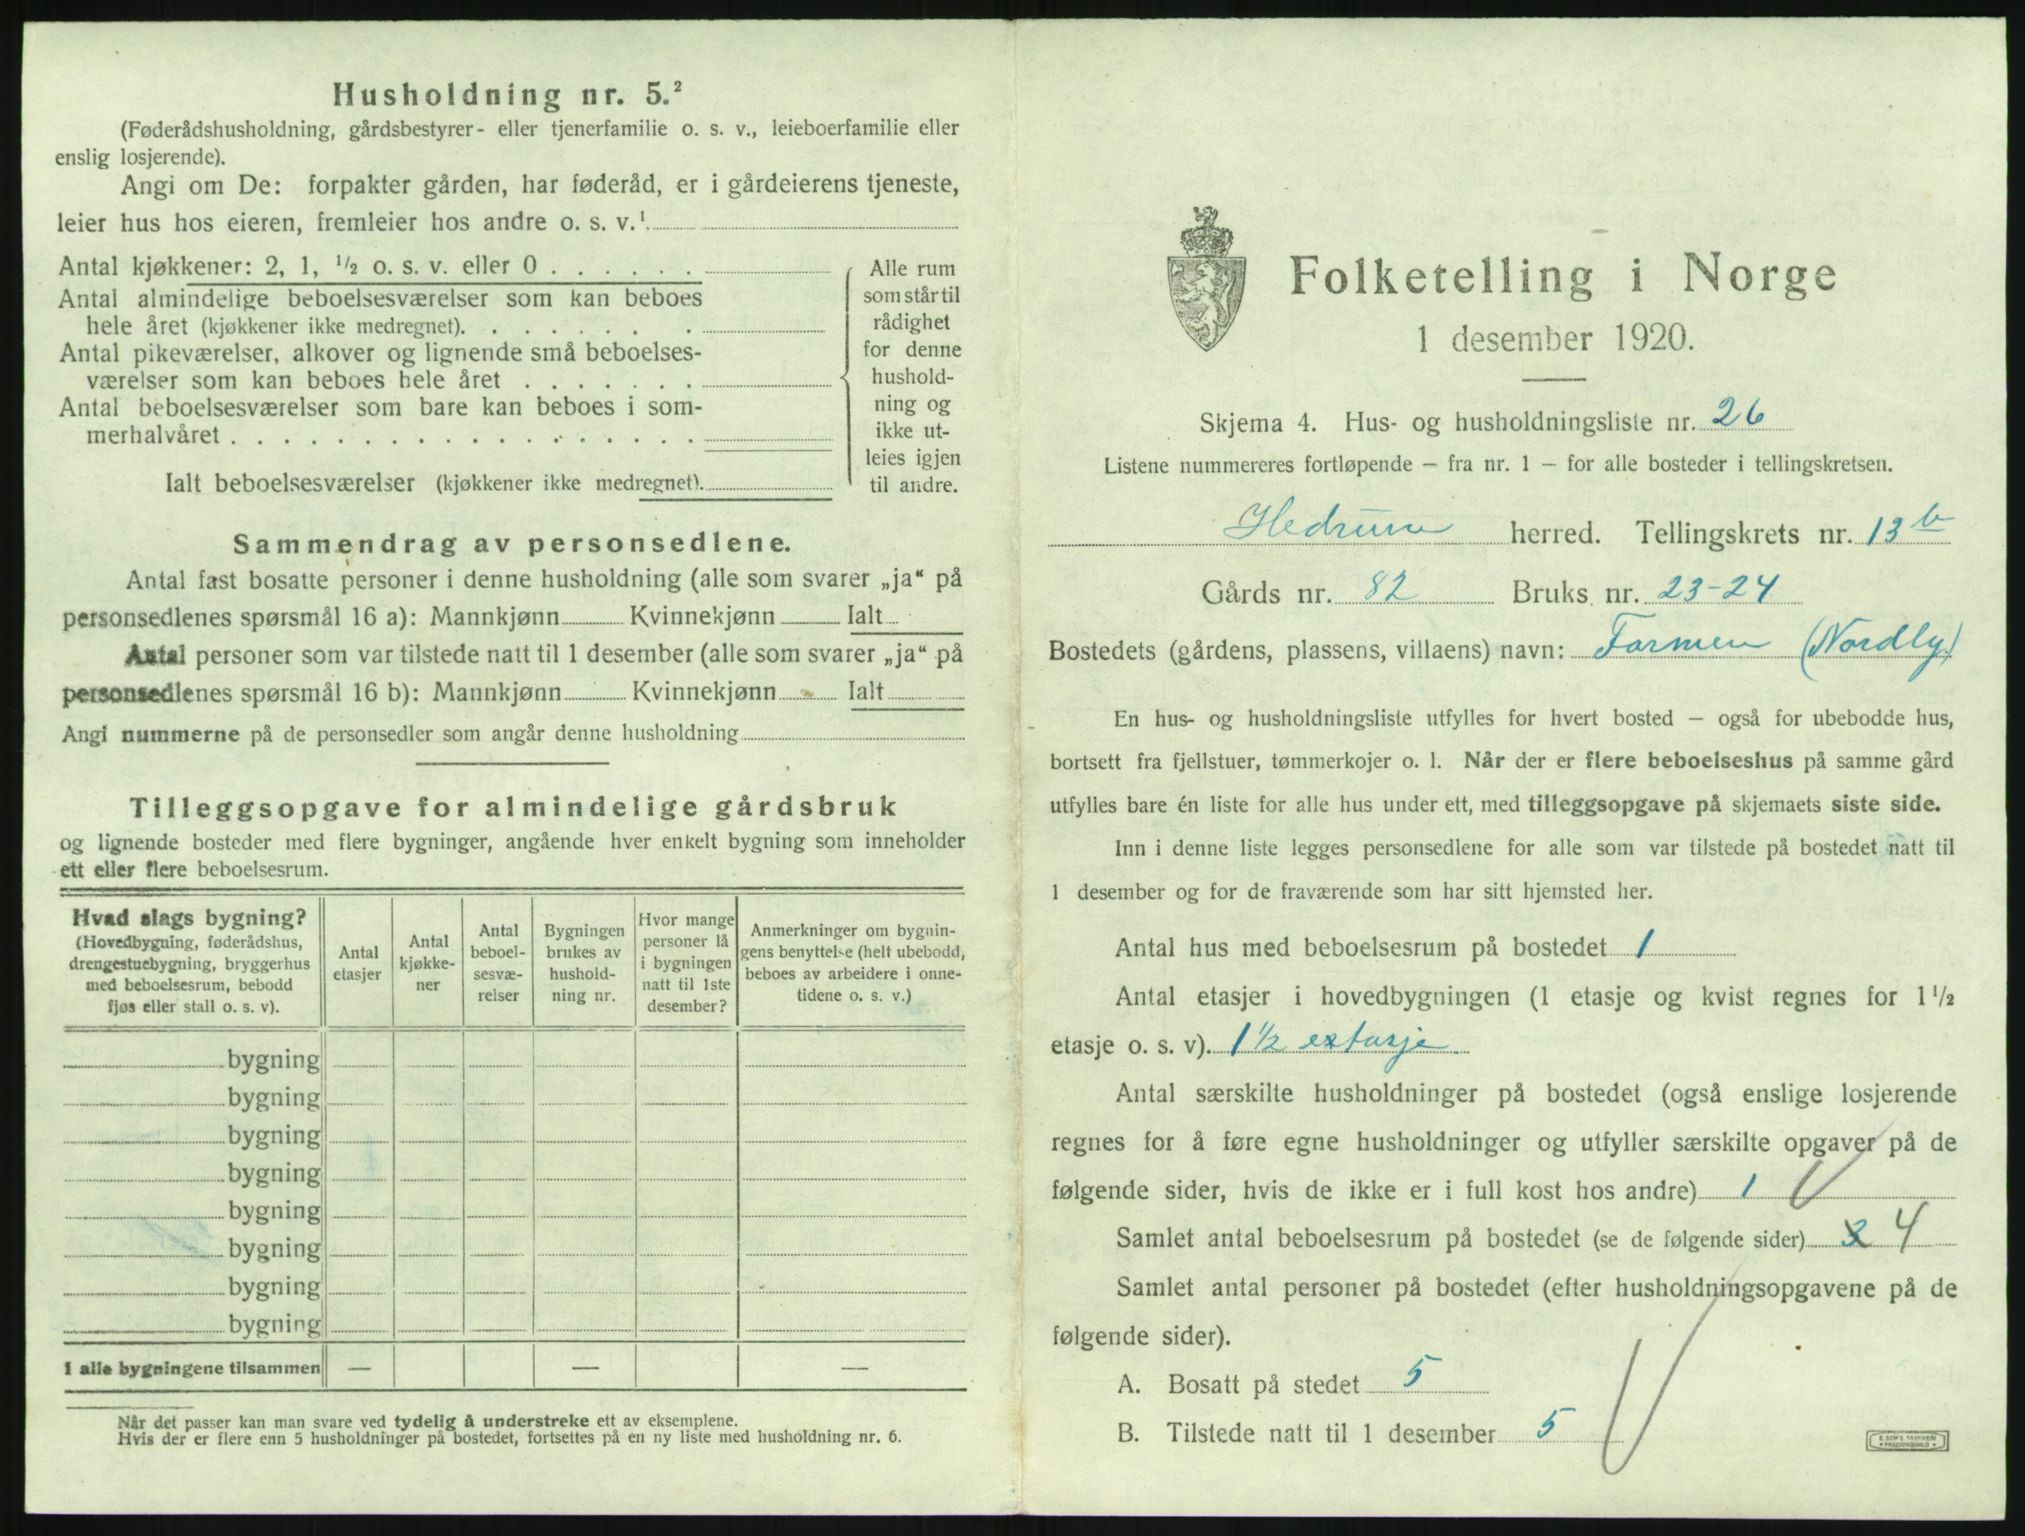 Husholdning nr. 5.²
(Føderådshusholdning, gårdsbestyrer- eller tjenerfamilie o. s. v., leieboerfamilie eller
enslig losjerende).
Angi om De: forpakter gården, har føderåd, er i gårdeierens tjeneste,
leier hus hos eieren, fremleier hos andre o. s. v.¹
Antal kjøkkener: 2, 1, ½ o. s. v. eller 0
Antal almindelige beboelsesværelser som kan beboes
hele året (kjøkkener ikke medregnet).
Antal pikeværelser, alkover og lignende små beboelses-
værelser som kan beboes hele året
Antal beboelsesværelser som bare kan beboes i som-
merhalvåret
Ialt beboelsesværelser (kjøkkener ikke medregnet).
Alle rum
som står til
rådighet
for denne
hushold-
ning og
ikke ut-
leies igjen
til andre.
Sammendrag av personsedlene.
Antal fast bosatte personer i denne husholdning (alle som svarer „ja“ på
personsedlenes spørsmål 16 a): Mannkjønn Kvinnekjønn Ialt
Antal personer som var tilstede natt til 1 desember (alle som svarer „ja“ på
personsedlenes spørsmål 16 b): Mannkjønn Kvinnekjønn Ialt
Angi nummerne på de personsedler som angår denne husholdning
Tilleggsopgave for almindelige gårdsbruk
og lignende bosteder med flere bygninger, angående hver enkelt bygning som inneholder
ett eller flere beboelsesrum.
Hvad slags bygning?
(Hovedbygning, føderådshus,
drengestuebygning, bryggerhus
med beboelsesrum, bebodd
fjøs eller stall o. s. v).
Antal
etasjer
Antal
kjøkke-
ner
Antal
beboel-
sesvæ-
relser
Bygningen
brukes av
hushold-
ning nr.
Hvor mange
personer lå
i bygningen
natt til 1ste
desember?
Anmerkninger om bygnin-
gens benyttelse (helt ubebodd,
beboes av arbeidere i onne-
tidene o. s. v.)
bygning
bygning
bygning
bygning
bygning
bygning
bygning
bygning
I alle bygningene tilsammen — — —
Når det passer kan man svare ved tydelig å understreke ett av eksemplene.
Hvis der er flere enn 5 husholdninger på bostedet, fortsettes på en ny liste med husholdning nr. 6.
Folketelling i Norge
1 desember 1920.
Skjema 4. Hus- og husholdningsliste nr. 26
Listene nummereres fortløpende — fra nr. 1 — for alle bosteder i tellingskretsen.
Hedrum herred. Tellingskrets nr. 13 b
Gårds nr. 82 Bruks nr. 23-24
Bostedets (gårdens, plassens, villaens) navn: Farmen (Nordly)
En hus- og husholdningsliste utfylles for hvert bosted — også for ubebodde hus,
bortsett fra fjellstuer, tømmerkojer o. l. Når der er flere beboelseshus på samme gård
utfylles bare én liste for alle hus under ett, med tilleggsopgave på skjemaets siste side.
Inn i denne liste legges personsedlene for alle som var tilstede på bostedet natt til
1 desember og for de fraværende som har sitt hjemsted her.
Antal hus med beboelsesrum på bostedet 1
Antal etasjer i hovedbygningen (1 etasje og kvist regnes for 1 ½
etasje o. s. v). 1 ½ extasje
Antal særskilte husholdninger på bostedet (også enslige losjerende
regnes for å føre egne husholdninger og utfyller særskilte opgaver på de
følgende sider, hvis de ikke er i full kost hos andre) 1
Samlet antal beboelsesrum på bostedet (se de følgende sider) 3 4
Samlet antal personer på bostedet (efter husholdningsopgavene på de
følgende sider).
A. Bosatt på stedet 5
B. Tilstede natt til 1 desember 5
E. SEM'S TRYKKERI
FREDRIKSHALD